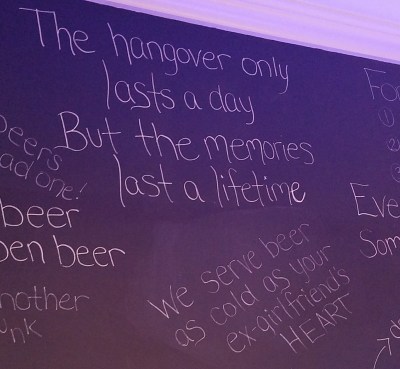 The hangover only
lasts a day
But the memories
last a lifetime
beers
ad one!
beer
pen beer
nother
nk
We serve beer
as cold as your
ex-girlfriend's
HEART
For
①
Eve
Som